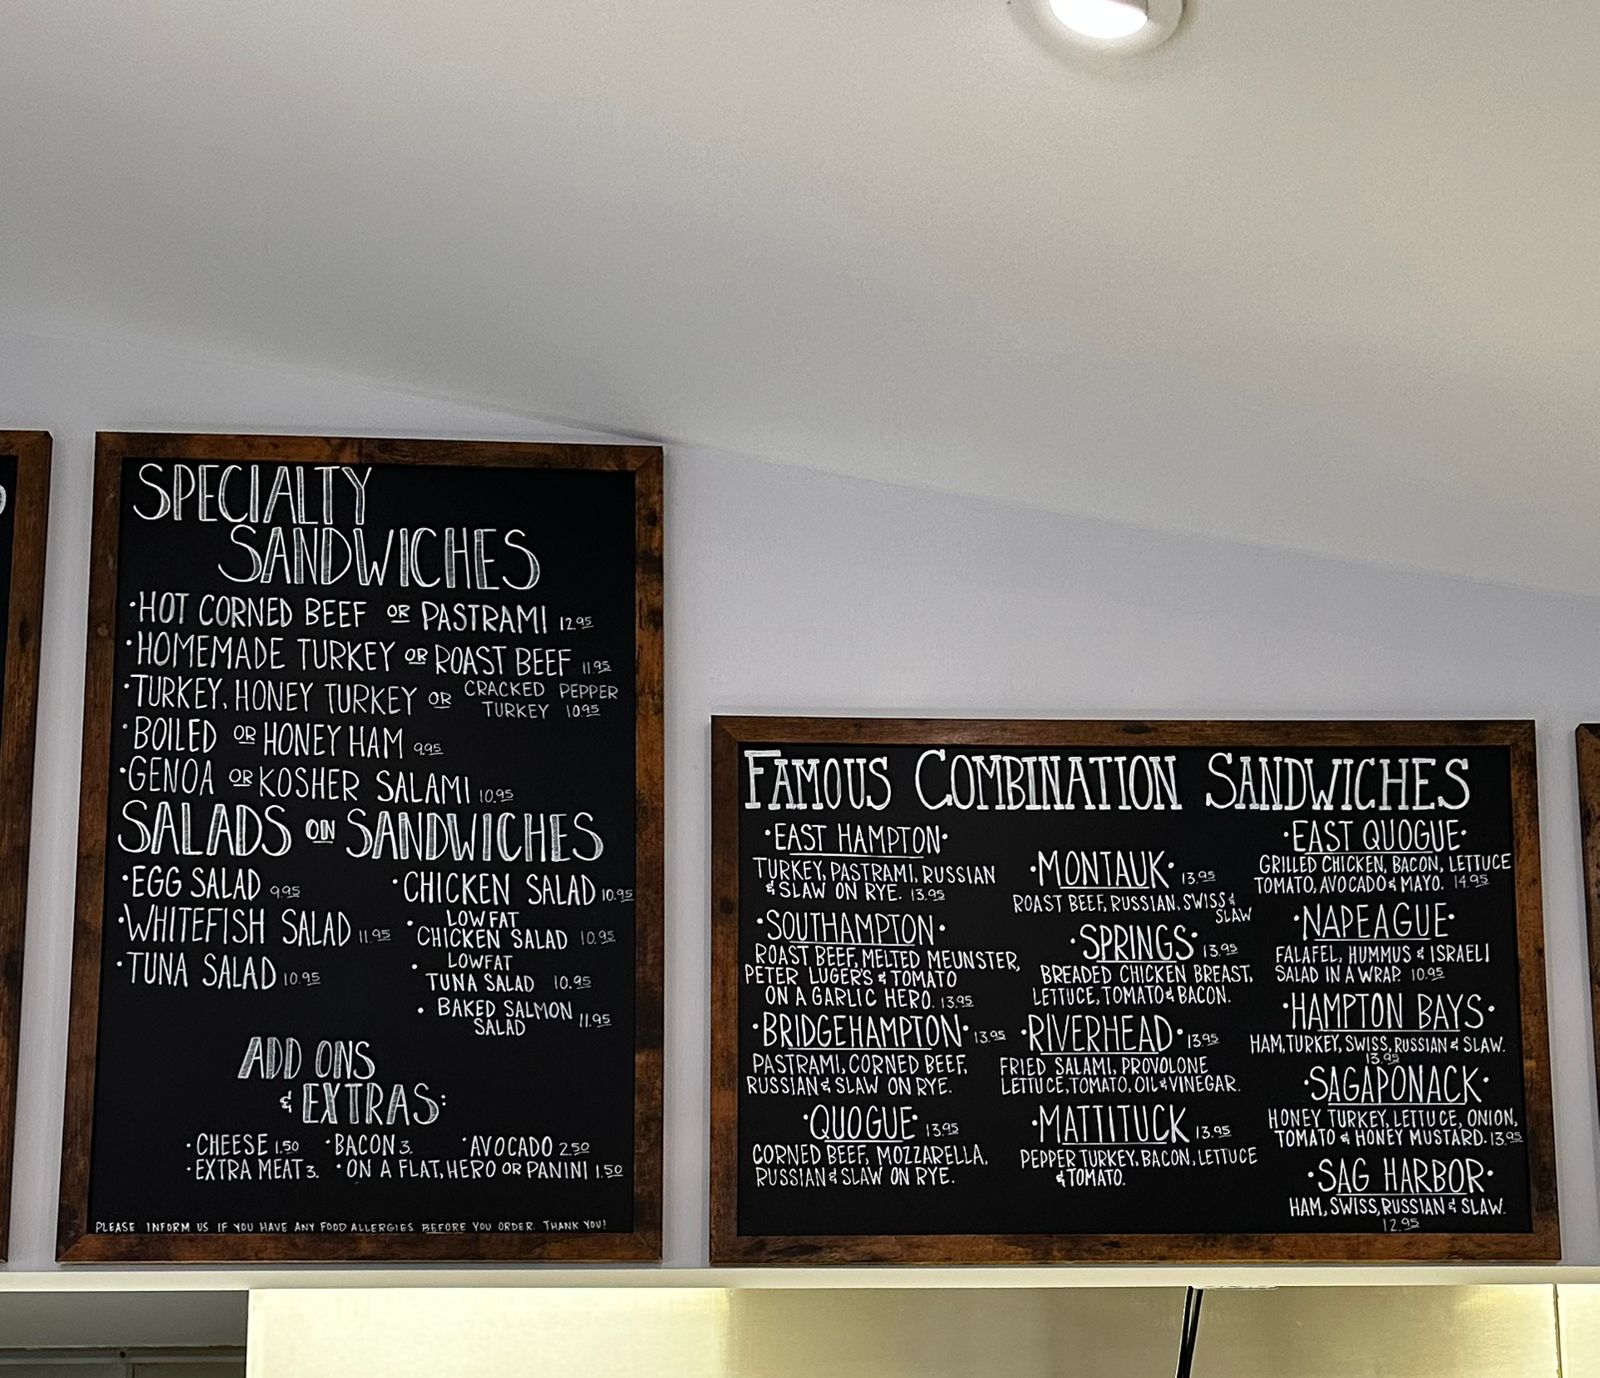 SPECIALTY
SANDWICHES
·HOT CORNED BEEF OR PASTRAMI 12.95
·HOMEMADE TURKEY OR ROAST BEEF 11.95
·TURKEY, HONEY TURKEY OR CRACKED PEPPER
TURKEY 10.95
·BOILED OR HONEY HAM 9.95
·GENOA OR KOSHER SALAMI 10.95
SALADS ON SANDWICHES
·EGG SALAD 9.95
·WHITEFISH SALAD 11.95
·TUNA SALAD 10.95
·CHICKEN SALAD 10.95
·LOWFAT
CHICKEN SALAD 10.95
·LOWFAT
TUNA SALAD 10.95
·BAKED SALMON
SALAD 11.95
ADD ONS
& EXTRAS:
·CHEESE 1.50 ·BACON 3. ·AVOCADO 2.50
·EXTRA MEAT 3. ·ON A FLAT, HERO OR PANINI 1.50
PLEASE INFORM US IF YOU HAVE ANY FOOD ALLERGIES BEFORE YOU ORDER. THANK YOU!
FAMOUS COMBINATION SANDWICHES
·EAST HAMPTON·
TURKEY, PASTRAMI, RUSSIAN
& SLAW ON RYE. 13.95
·SOUTHAMPTON·
ROAST BEEF, MELTED MEUNSTER,
PETER LUGER'S & TOMATO
ON A GARLIC HERO. 13.95
·BRIDGEHAMPTON· 13.95
PASTRAMI, CORNED BEEF,
RUSSIAN & SLAW ON RYE.
·QUOGUE· 13.95
CORNED BEEF, MOZZARELLA,
RUSSIAN & SLAW ON RYE.
·MONTAUK· 13.95
ROAST BEEF, RUSSIAN, SWISS &
SLAW
·SPRINGS· 13.95
BREADED CHICKEN BREAST,
LETTUCE, TOMATO & BACON.
·RIVERHEAD· 13.95
FRIED SALAMI, PROVOLONE
LETTUCE, TOMATO, OIL & VINEGAR.
·MATTITUCK· 13.95
PEPPER TURKEY, BACON, LETTUCE
& TOMATO.
·EAST QUOGUE·
GRILLED CHICKEN, BACON, LETTUCE
TOMATO, AVOCADO & MAYO. 14.95
·NAPEAGUE·
FALAFEL, HUMMUS & ISRAELI
SALAD IN A WRAP. 10.95
·HAMPTON BAYS·
HAM, TURKEY, SWISS, RUSSIAN & SLAW.
13.95
·SAGAPONACK·
HONEY TURKEY, LETTUCE, ONION,
TOMATO & HONEY MUSTARD. 13.95
·SAG HARBOR·
HAM, SWISS, RUSSIAN & SLAW.
12.95